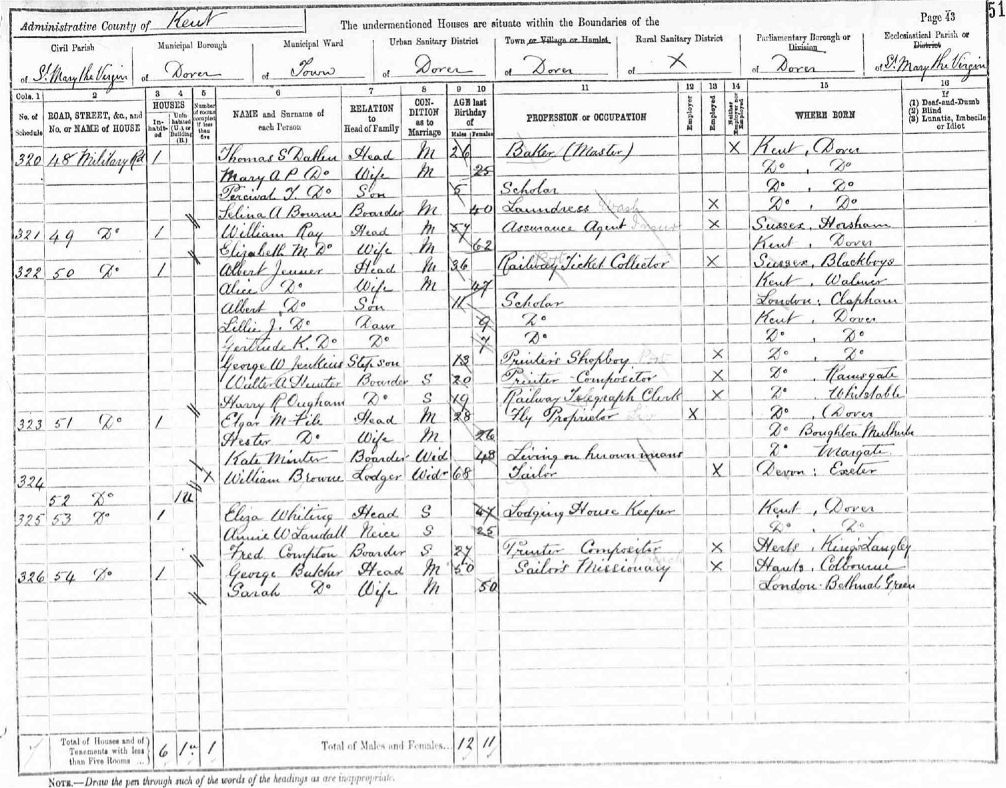 Administrative County of Kent
The undermentioned Houses are situate within the Boundaries of the
Page 43
51
Civil Parish
of St Mary the Virgin
Municipal Borough
of Dover
Municipal Ward
of Town
Urban Sanitary District
of Dover
Town or Village or Hamlet
of Dover
Rural Sanitary District
of X
Parliamentary Borough or Division
of Dover
Ecclesiastical Parish or District
of St Mary the Virgin
Cols. 1 2 3 4 5 6 7 8 9 10 11 12 13 14 15 16
No. of Schedule
ROAD, STREET, &c., and No. or NAME of HOUSE
HOUSES
In-habit-ed
Unin-habited (U.) or Building (B.)
Number of rooms occupied if less than five
NAME and Surname of each Person
RELATION to Head of Family
CON-DITION as to Marriage
AGE last Birthday of
Males Females
PROFESSION or OCCUPATION
Employer
Employed
Neither Employer nor Employed
WHERE BORN
If
(1) Deaf-and-Dumb
(2) Blind
(3) Lunatic, Imbecile or Idiot
320 48 Military Rd 1 Thomas S Datlen Head M 26 Baker (Master) X Kent, Dover
Mary A P Do Wife M 25 Do, Do
Percival T. Do Son 5 Scholar Do, Do
Selina A Bourne Boarder M 40 Laundress Wash X Do, Do
321 49 Do 1 William Ray Head M 57 Assurance Agent X Sussex, Horsham
Elizabeth M Do Wife M 62 Kent, Dover
322 50 Do 1 Albert Jenner Head M 36 Railway Ticket Collector X Sussex, Blackboys
Alice Do Wife M 47 Kent, Walmer
Albert Do Son 11 Scholar London: Clapham
Lillie J. Do Daur 9 Do Kent, Dover
Gertrude K. Do Do 7 Do Do, Do
George W Jenkins Stepson 13 Printer's Shopboy X Do, Do
Walter A Hunter Boarder S 20 Printer Compositor X Do, Ramsgate
Harry R Ougham Do S 19 Railway Telegraph Clerk X Do, Whitstable
323 51 Do 1 Elgar M File Head M 28 Fly Proprietor X Do, Dover
Hester Do Wife M 26 Do Boughton
Kate Minter Boarder Wid 48 Living on her own means Do Margate
324 X William Browne Lodger Widr 68 Tailor X Devon: Exeter
52 Do 1u
325 53 Do 1 Eliza Whiting Head S 47 Lodging House Keeper Kent, Dover
Annie W Landall Neice S 25 Do, Do
Fred Compton Boarder S 27 Printer Compositor X Herts, King's Langley
326 54 Do 1 George Butcher Head M 50 Sailor's Missionary X Hants, Colbourne
Sarah Do Wife M 50 London Bethnal Green
Total of Houses and of Tenements with less than Five Rooms ... 6 1u 1
Total of Males and Females... 12 11
NOTE.—Draw the pen through such of the words of the headings as are inappropriate.